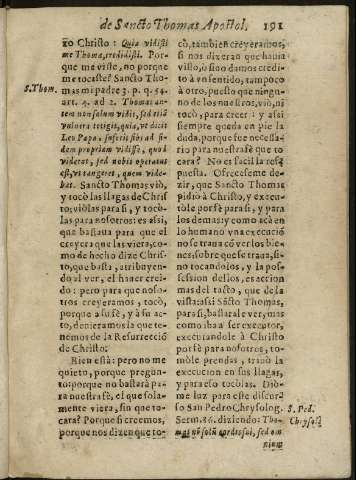 de Sancto Thomas Apostol. 191
zo Christo : Quia vidisti
me Thoma, credidisti. Por-
que me viste, no porque
me tocaste? Sancto Tho-
S. Thom.
mas mi padre 3. p. q. 54.
art. 4. ad 2. Thomas au-
tem non solum vidit, sed etiã
vulnera tetigit, quia, vt dicit
Leo Papa, sufficit sibi ad fi-
dem propriam vidisse, quod
viderat, sed nobis operatus
est, vt tangeret, quem vide-
bat. Sancto Thomas viò,
y tocò las llagas de Chris
to; viòlas para si, y tocò-
las para nosotros: es assi,
que bastaua para que el
creyera que las viera, co-
mo de hecho dize Chris-
to, que basta, atribuyen-
do al ver, el hauer crei-
do : pero para que noso-
tros creyeramos, tocò,
porque a su fè, y a su ac-
to, deuieramos la que te-
nemos de la Resurrecciõ
de Christo.
Bien està: pero no me
quieto, porque pregun-
to: porque no bastarà pa-
ra nuestra fè, el que sola-
mente viera, sin que to-
cara? Porque si creemos,
porque nos dizen que to-
cò, tambien creyeramos,
si nos dixeran que hauia
visto, ò sino damos credi-
to à vn sentido, tampoco
à otro, puesto que ningu-
no de los nuestros, viò, ni
tocò, para creer : y assi
siempre queda en pie la
duda, porque fue necessa-
rio para nuestra fè que to-
cara? No es facil la res-
puesta. Ofreceseme de-
zir, que Sancto Thomas
pidiò à Christo, y execu-
tòle por fè para si, y para
los demas: y como acà en
lo humano vna execuciõ
no se traua cõ ver los bie-
nes, sobre que se traua, si-
no tocandolos, y la pos-
session dellos, es accion
mas del tacto, que de la
vista: assi Sãcto Thomas,
para si, bastarale ver, mas
como iba a ser executor,
executandole à Christo
por fè para nosotros, to-
mòle prendas, trauò la
execucion en sus llagas,
y para esso tocòlas. Diò-
me luz para este discur-
so San Pedro Chrysolog.
S. Ped.
Serm. 86. diziendo: Tho-
Chrysol.
mas nõ solũ cordis sui, sed om
nium